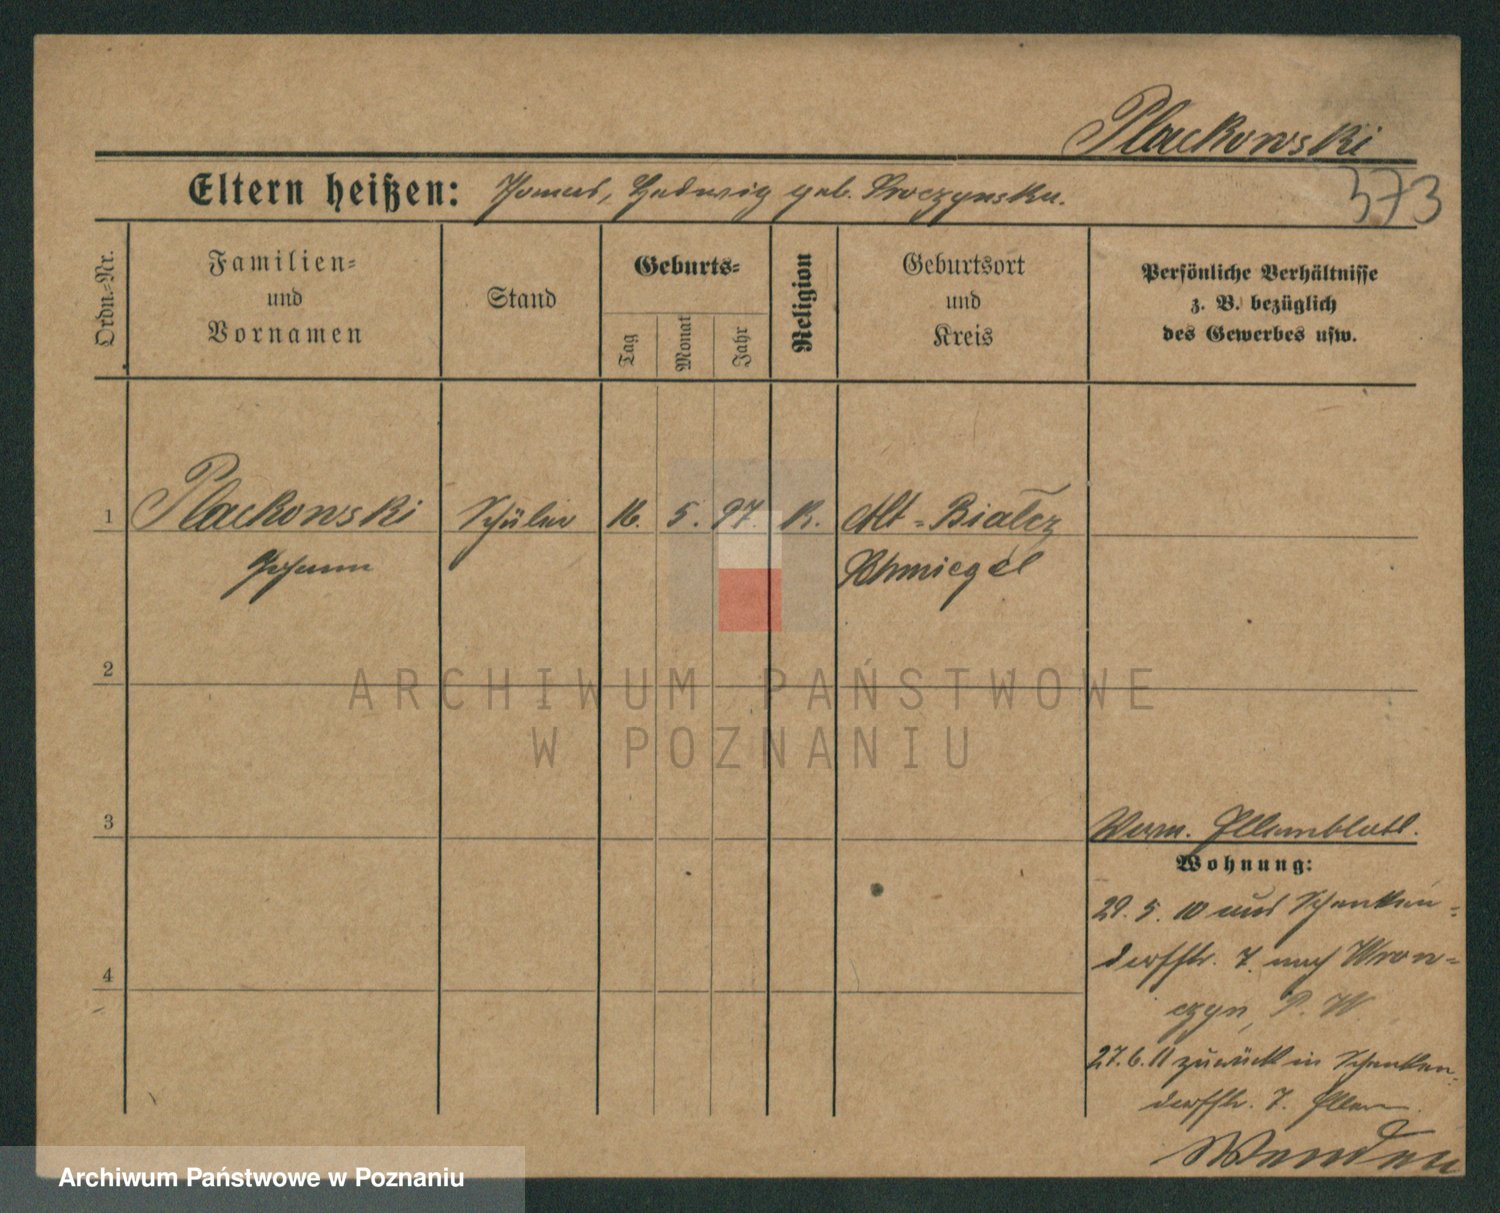 Plackowski
573
Eltern heißen: Thomas, Hedwig geb. Kroczynska.
Ordn.-Nr.
Familien-
und
Vornamen
Stand
Geburts-
Tag
Monat
Jahr
Religion
Geburtsort
und
Kreis
Persönliche Verhältnisse
z. B. bezüglich
des Gewerbes usw.
1
Plackowski
Johann
Schüler
16.
5.
97.
K.
Alt-Bialcz
Schmiegel
2
3
4
Verm. Elternblatt.
Wohnung:
29. 5. 10 aus Schenken-
dorffstr. 7. nach Wron-
czyn, P. W
27. 6. 11 zurück in Schenken-
dorffstr. 7. Eltern.
ARCHIWUM PAŃSTWOWE
W POZNANIU
Archiwum Państwowe w Poznaniu